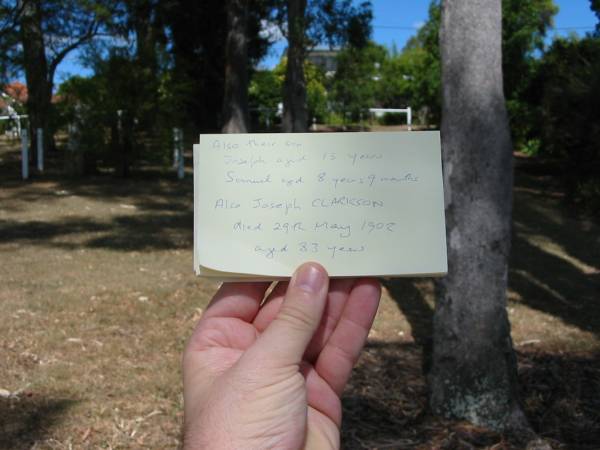 Also their son
Joseph aged 15 years
Samuel aged 8 years 9 months
Also Joseph CLARKSON
died 29th May 1902
aged 83 years